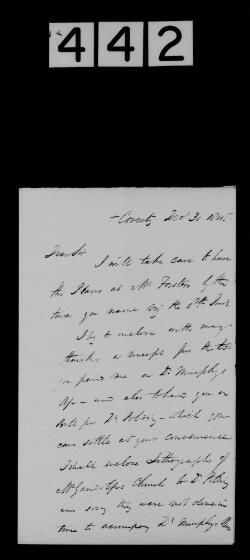 442
Coventry Dec 30 1845.
Dear Sir
I will take care to have
the Plans at Mr by the
time you name viz the 8th
I beg to enclose with many
thanks a receipt for the
you paid me on Dr Murphy's
a/c - and also to hand you a
bill for Dr - which you
can settle at your convenience
I shall enclose Lithographs of
Church to Dr
am sorry they were not done in
time to accompany Dr Murphy's